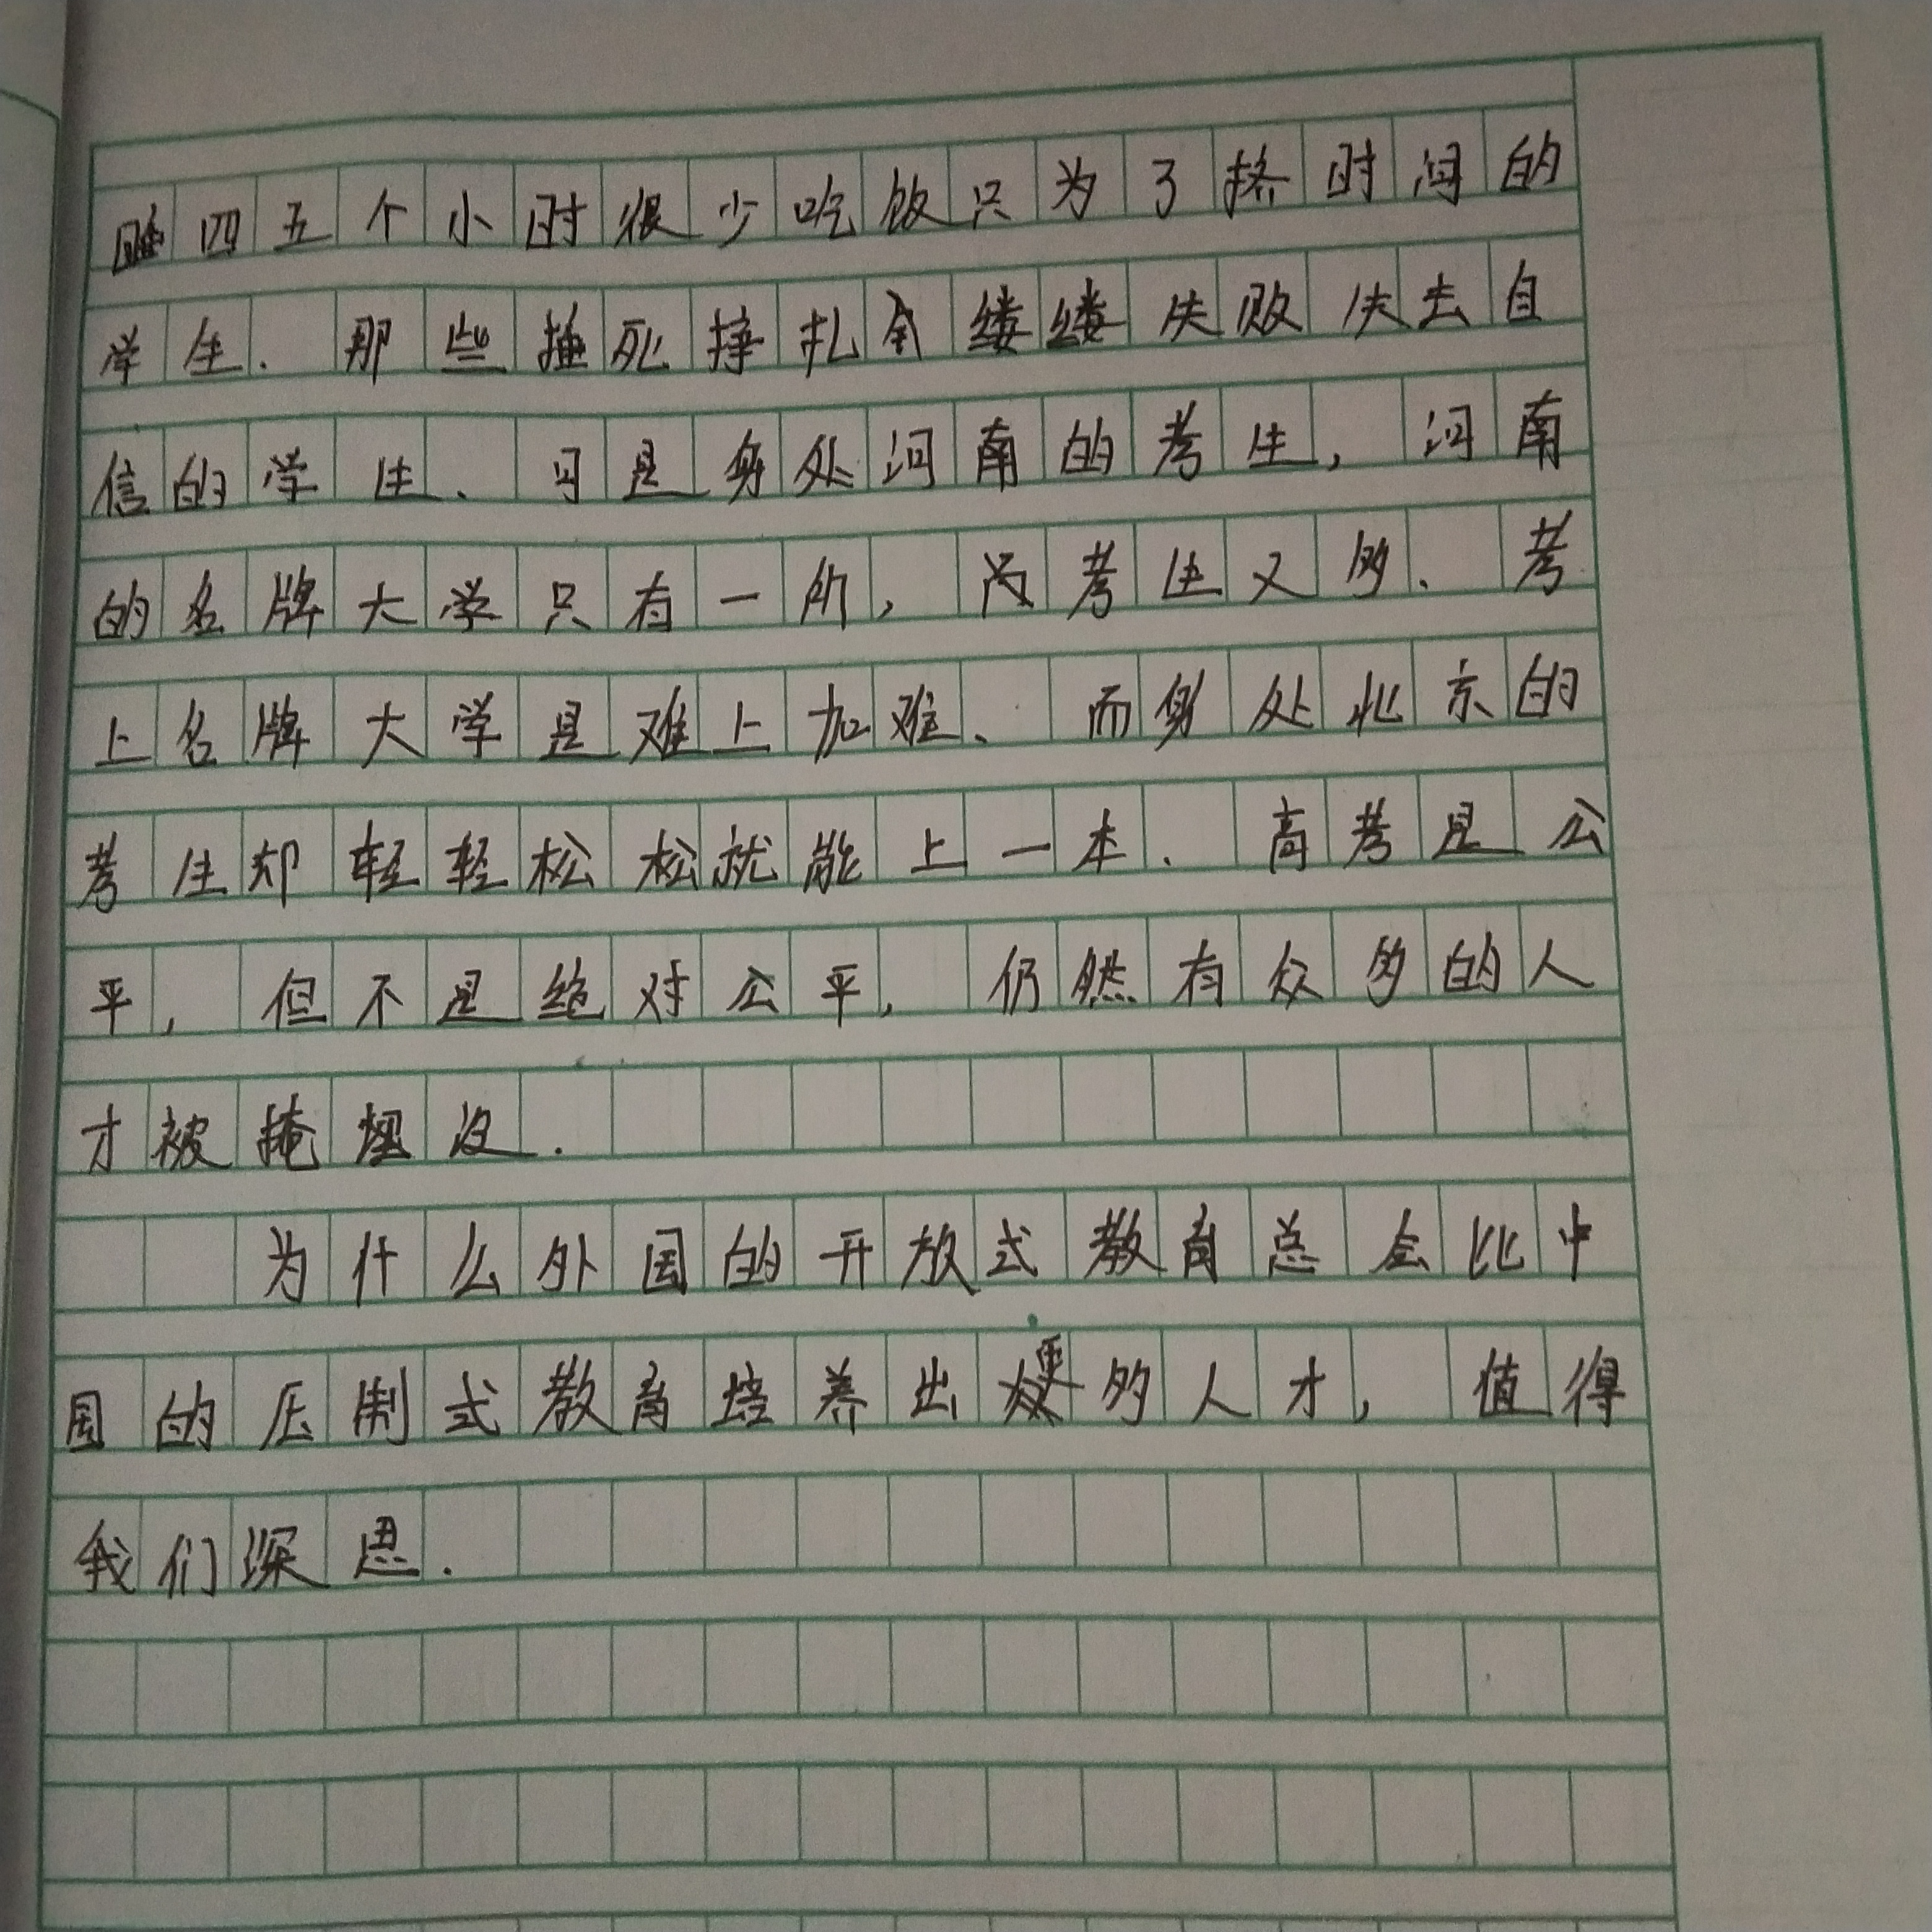 睡四五个小时很少吃饭只为了挤时间的
学生.那些捶死挣扎会缕缕失败失去自
信的学生.可是身处河南的考生,河南
的名牌大学只有一所,而考生又多.考
上名牌大学是难上加难.而身处北京的
考生却轻轻松松就能上一本.高考是公
平,但不是绝对公平,仍然有众多的人
才被掩埋没.
为什么外国的开放式教育总会比中
国的压制式教育培养出更多的人才,值得
我们深思.